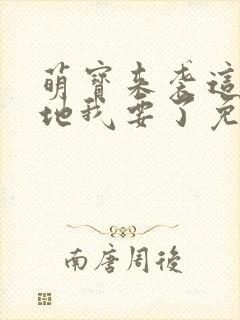 萌寶來襲這
地我要了免
南唐周後